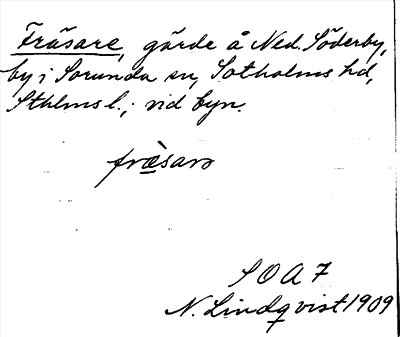 Fräsare, gärde å Ned. Söderby,
by i Sorunda sn, Sotholms hd,
Sthlms l.; vid byn.
fræ̀sarɔ
SOA 7
N. Lindqvist 1909